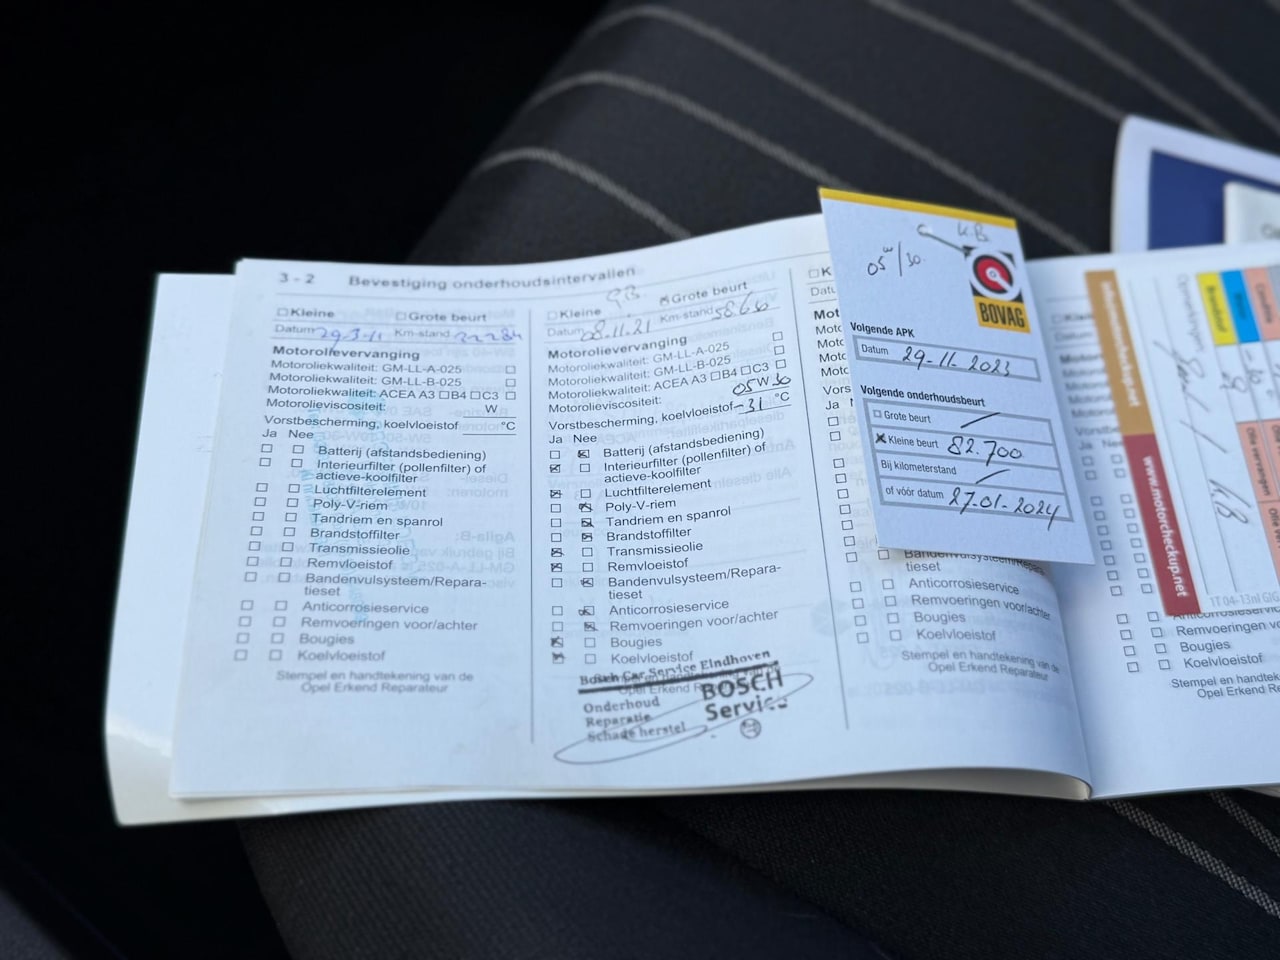 3 - 2 Bevestiging onderhoudsintervallen
Kleine Grote beurt
Datum 29-3-11 Km-stand
Motorolievervanging
Motoroliekwaliteit: GM-LL-A-025
Motoroliekwaliteit: GM-LL-B-025
Motoroliekwaliteit: ACEA A3 B4 C3
Motorolieviscositeit: W
Vorstbescherming, koelvloeistof °C
Ja Nee
Batterij (afstandsbediening)
Interieurfilter (pollenfilter) of
actieve-koolfilter
Luchtfilterelement
Poly-V-riem
Tandriem en spanrol
Brandstoffilter
Transmissieolie
Remvloeistof
Bandenvulsysteem/Repara-
tieset
Anticorrosieservice
Remvoeringen voor/achter
Bougies
Koelvloeistof
Stempel en handtekening van de
Opel Erkend Reparateur
Kleine Grote beurt
Datum 08.11.21 Km-stand
Motorolievervanging
Motoroliekwaliteit: GM-LL-A-025
Motoroliekwaliteit: GM-LL-B-025
Motoroliekwaliteit: ACEA A3 B4 C3
Motorolieviscositeit: 05 W 30
Vorstbescherming, koelvloeistof -31 °C
Ja Nee
Batterij (afstandsbediening)
Interieurfilter (pollenfilter) of
actieve-koolfilter
Luchtfilterelement
Poly-V-riem
Tandriem en spanrol
Brandstoffilter
Transmissieolie
Remvloeistof
Bandenvulsysteem/Repara-
tieset
Anticorrosieservice
Remvoeringen voor/achter
Bougies
Koelvloeistof
Bosch Car Service Eindhoven
Opel Erkend
Onderhoud
Reparatie
Schade herstel
BOSCH
Service
K.B.
05 w/30
BOVAG
Volgende APK
Datum 29-11-2023
Volgende onderhoudsbeurt
Grote beurt
Kleine beurt 82.700
Bij kilometerstand
of vóór datum 27-01-2024
Bandenvulsysteem/Repara-
tieset
Anticorrosieservice
Remvoeringen voor/achter
Bougies
Koelvloeistof
Stempel en handtekening van de
Opel Erkend Reparateur
www.motorcheckup.net
Anticorrosieservice
Remvoeringen vo
Bougies
Koelvloeistof
Stempel en handteke
Opel Erkend Re